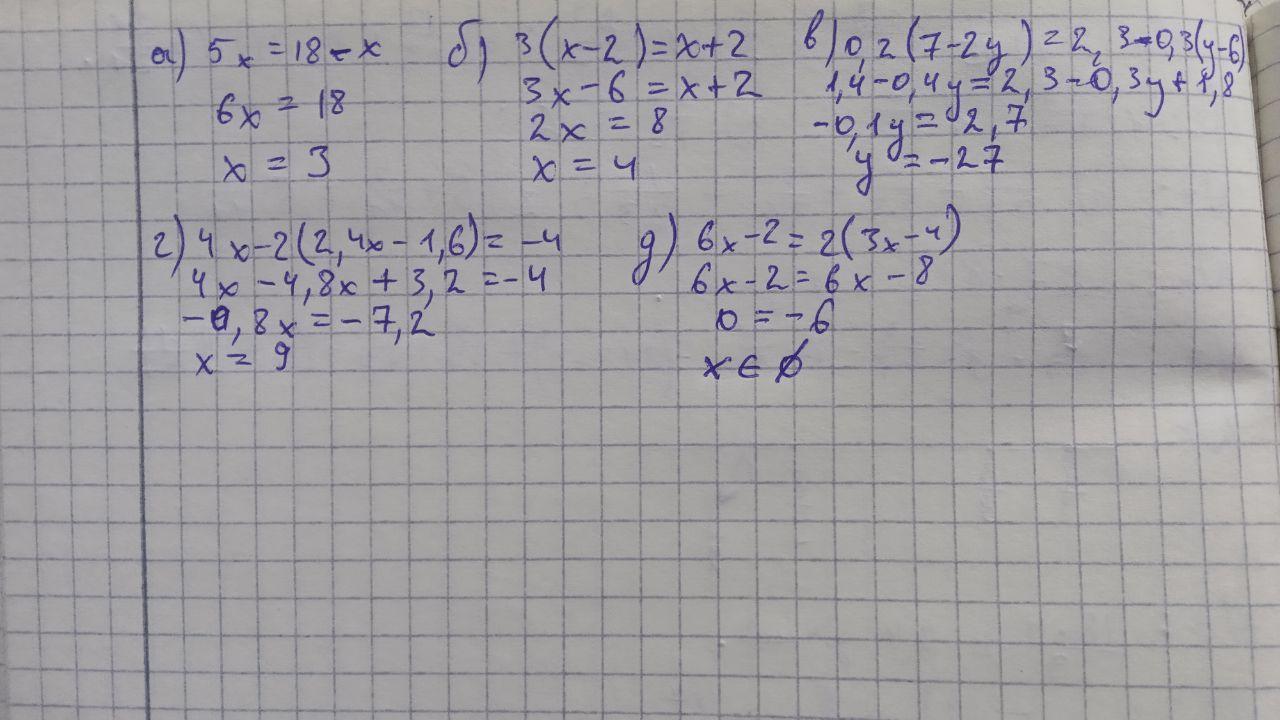 а) 5x = 18 - x
6x = 18
x = 3
б) 3(x-2) = x+2
3x - 6 = x+2
2x = 8
x = 4
в) 0,2(7-2y) = 2,3-0,3(y-6)
1,4-0,4y = 2,3-0,3y+1,8
-0,1y = 2,7
y = -27
г) 4x-2(2,4x-1,6) = -4
4x - 4,8x + 3,2 = -4
-0,8x = -7,2
x = 9
д) 6x-2 = 2(3x-4)
6x-2 = 6x-8
0 = -6
x ∈ ∅